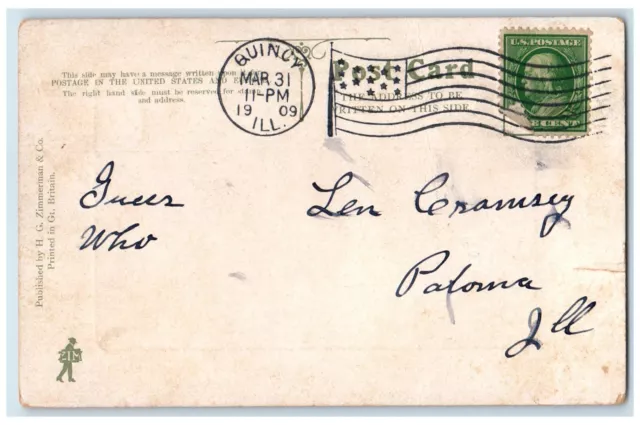 This side may have a message written upon
POSTAGE IN THE UNITED STATES AND
The right hand side must be reserved for
and address.
QUINCY
MAR 31
11-PM
1909
ILL.
Post Card
THE ADDRESS TO BE
WRITTEN ON THIS SIDE
U.S. POSTAGE
CENT
Guess
Who
Len Cramsey
Paloma
Ill
Published by H. G. Zimmerman & Co.
Printed in Gt. Britain.
ZIM